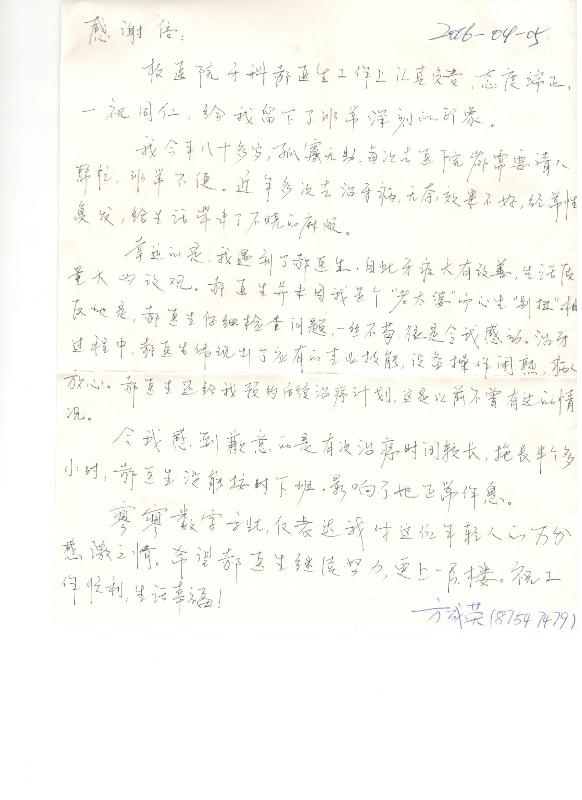 感谢信:
2006-04-05
校医院牙科郝医生工作上认真负责,态度端正,
一视同仁,给我留下了非常深刻的印象。
我今年八十多岁,孤寡无助,每次去医院都需要请人
帮忙,非常不便。近年多次去治牙病,无奈效果不好,经常性
复发,给生活带来了不晓的麻烦。
幸运的是,我遇到了郝医生,自此牙症大有改善,生活质
量大为改观。郝医生并未因我是个"老太婆"而心生"别扭"相
反地是,郝医生仔细检查问题,一丝不苟,很是令我感动。治牙
过程中,郝医生体现出了应有的专业技能,设备操作闲熟,病人
放心。郝医生还给我预约后续治疗计划,这是以前不曾有过的情
况。
令我感到歉意的是有次治疗时间较长,拖长半个多
小时,郝医生没能按时下班,影响了他正常作息。
寥寥数字于此,仅表达我对这位年轻人的万分
感激之情。希望郝医生继续努力,更上一层楼。祝工
作顺利,生活幸福!
方成英(87547479)